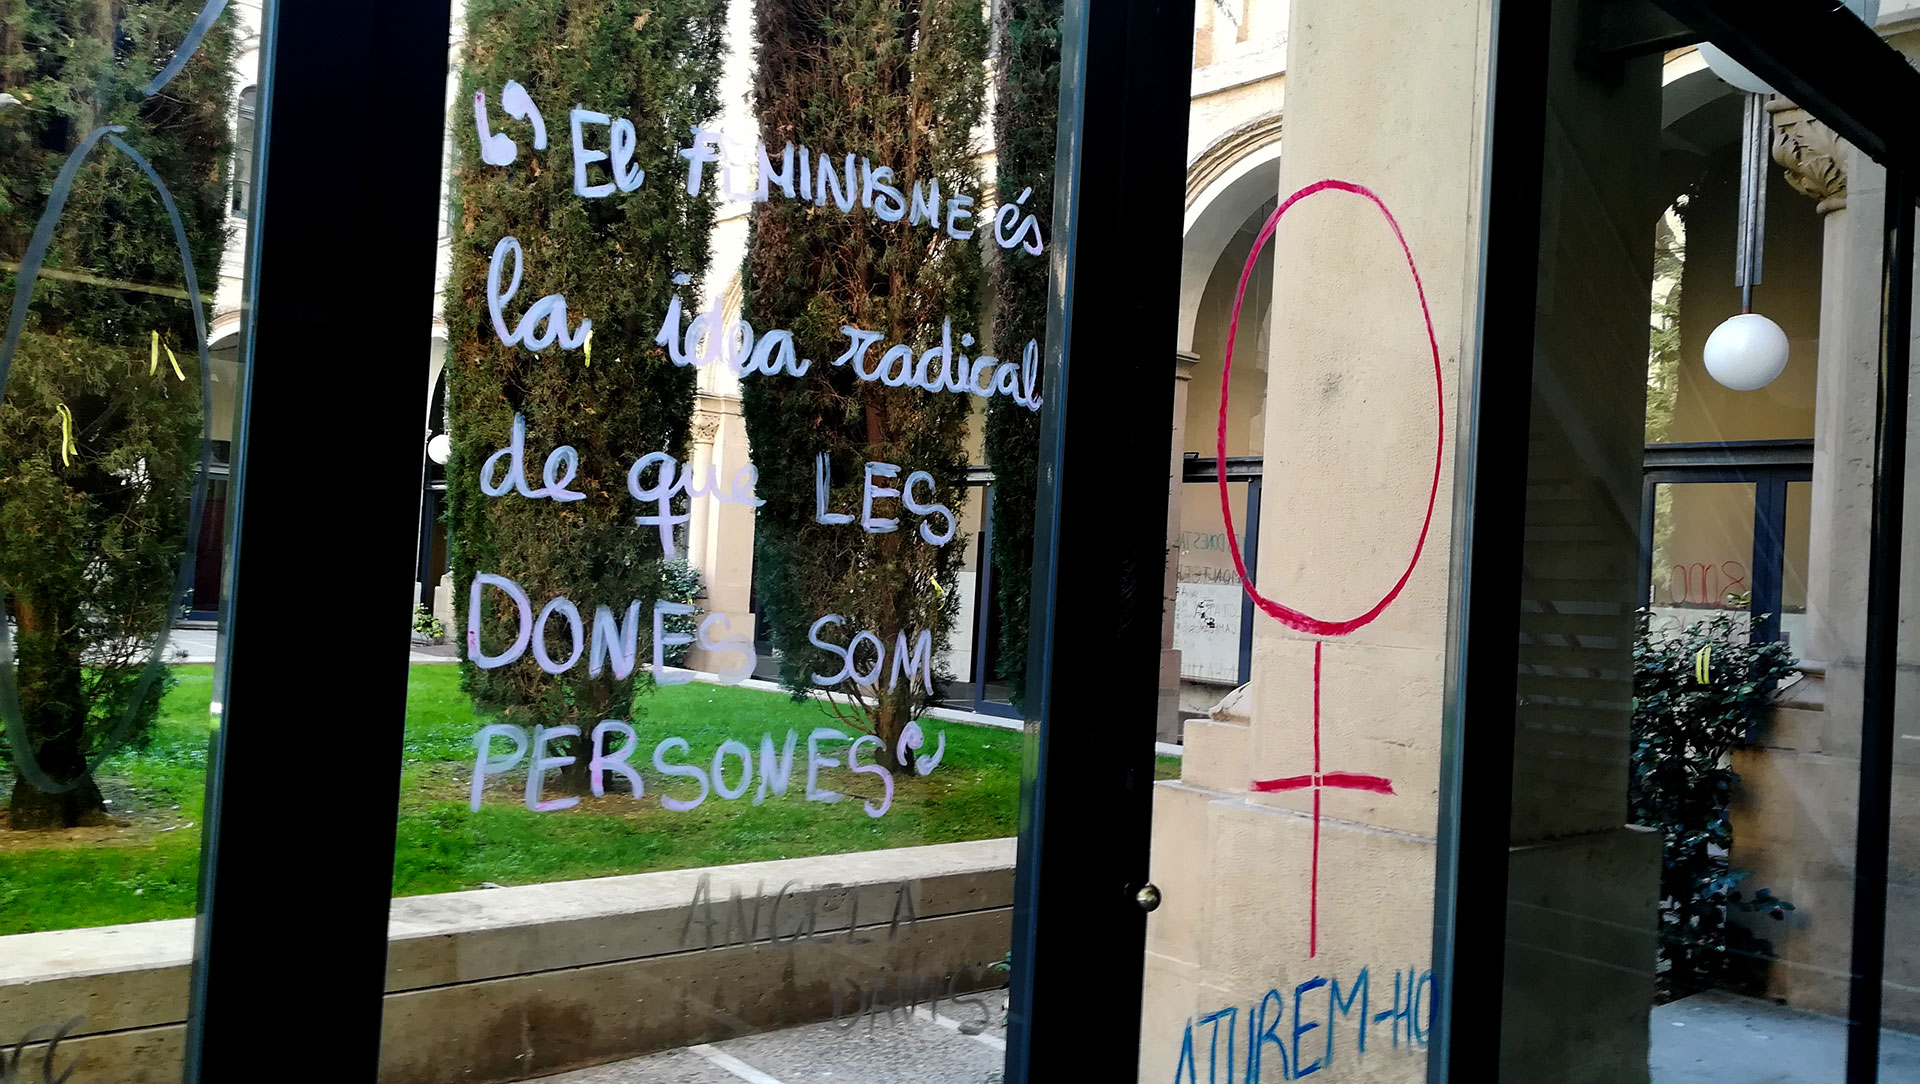 " El FEMINISME és
la idea radical
de que LES
DONES SOM
PERSONES "
ANGELA
DAVIS
ATUREM-HO